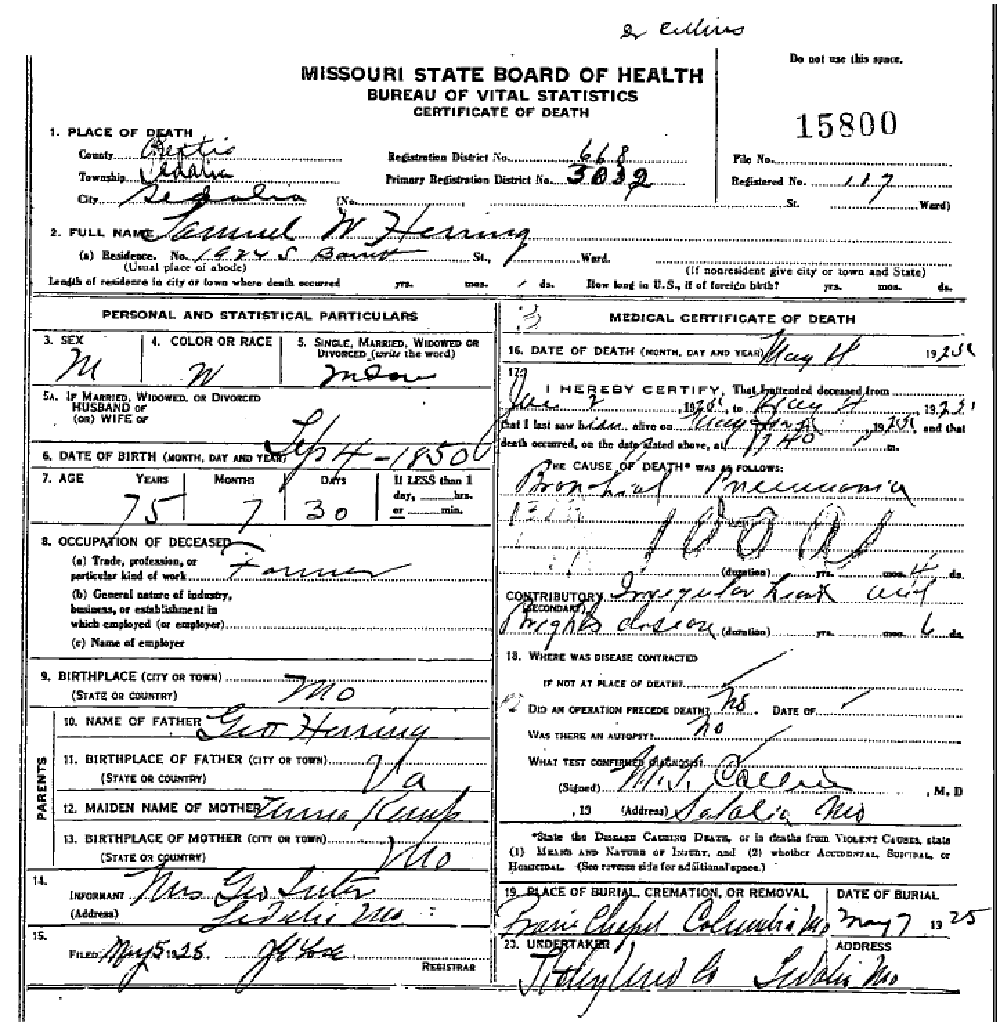 Dr Collins
Do not use this space.
MISSOURI STATE BOARD OF HEALTH
BUREAU OF VITAL STATISTICS
CERTIFICATE OF DEATH
15800
1. PLACE OF DEATH
County Pettis Registration District No. 668 File No.
Township Sedalia Primary Registration District No. 3032 Registered No. 117
City Sedalia (No. St. Ward)
2. FULL NAME Samuel W Herring
(a) Residence. No. 1924 S St., Ward.
(Usual place of abode) (If nonresident give city or town and State)
Length of residence in city or town where death occurred yrs. mos. ds. How long in U.S., if of foreign birth? yrs. mos. ds.
PERSONAL AND STATISTICAL PARTICULARS
3. SEX 4. COLOR OR RACE 5. SINGLE, MARRIED, WIDOWED OR
DIVORCED (write the word)
M W
5A. IF MARRIED, WIDOWED, OR DIVORCED
HUSBAND OF
(OR) WIFE OF
6. DATE OF BIRTH (MONTH, DAY AND YEAR) Sep 4 - 1850
7. AGE YEARS MONTHS DAYS If LESS than 1
day, hrs.
or min.
75 7 30
8. OCCUPATION OF DECEASED
(a) Trade, profession, or
particular kind of work Farmer
(b) General nature of industry,
business, or establishment in
which employed (or employer)
(c) Name of employer
9. BIRTHPLACE (CITY OR TOWN)
(STATE OR COUNTRY) Mo
PARENTS
10. NAME OF FATHER Geo Herring
11. BIRTHPLACE OF FATHER (CITY OR TOWN)
(STATE OR COUNTRY) Va
12. MAIDEN NAME OF MOTHER
13. BIRTHPLACE OF MOTHER (CITY OR TOWN)
(STATE OR COUNTRY) Mo
14.
INFORMANT Mrs Geo
(Address) Sedalia Mo
15.
FILED May 5 1925
REGISTRAR
MEDICAL CERTIFICATE OF DEATH
16. DATE OF DEATH (MONTH, DAY AND YEAR) May 4 1925
17.
I HEREBY CERTIFY, That I attended deceased from
1925, to May 4, 1925
that I last saw him alive on 1925, and that
death occurred, on the date stated above, at m.
THE CAUSE OF DEATH* WAS AS FOLLOWS:
Bronchial Pneumonia
100A1
(duration) yrs. mos. 4 ds.
CONTRIBUTORY Irregular heart and
(SECONDARY)
Brights disease (duration) yrs. mos. 6 ds.
18. WHERE WAS DISEASE CONTRACTED
IF NOT AT PLACE OF DEATH?
DID AN OPERATION PRECEDE DEATH? No. DATE OF
WAS THERE AN AUTOPSY? No
WHAT TEST CONFIRMED DIAGNOSIS?
(Signed) Collins, M. D
, 19 (Address) Sedalia Mo
*State the DISEASE CAUSING DEATH, or in deaths from VIOLENT CAUSES, state
(1) MEANS AND NATURE OF INJURY, and (2) whether ACCIDENTAL, SUICIDAL, or
HOMICIDAL. (See reverse side for additional space.)
19. PLACE OF BURIAL, CREMATION, OR REMOVAL DATE OF BURIAL
Chapel Columbia Mo May 7 1925
20. UNDERTAKER ADDRESS
Co Sedalia Mo